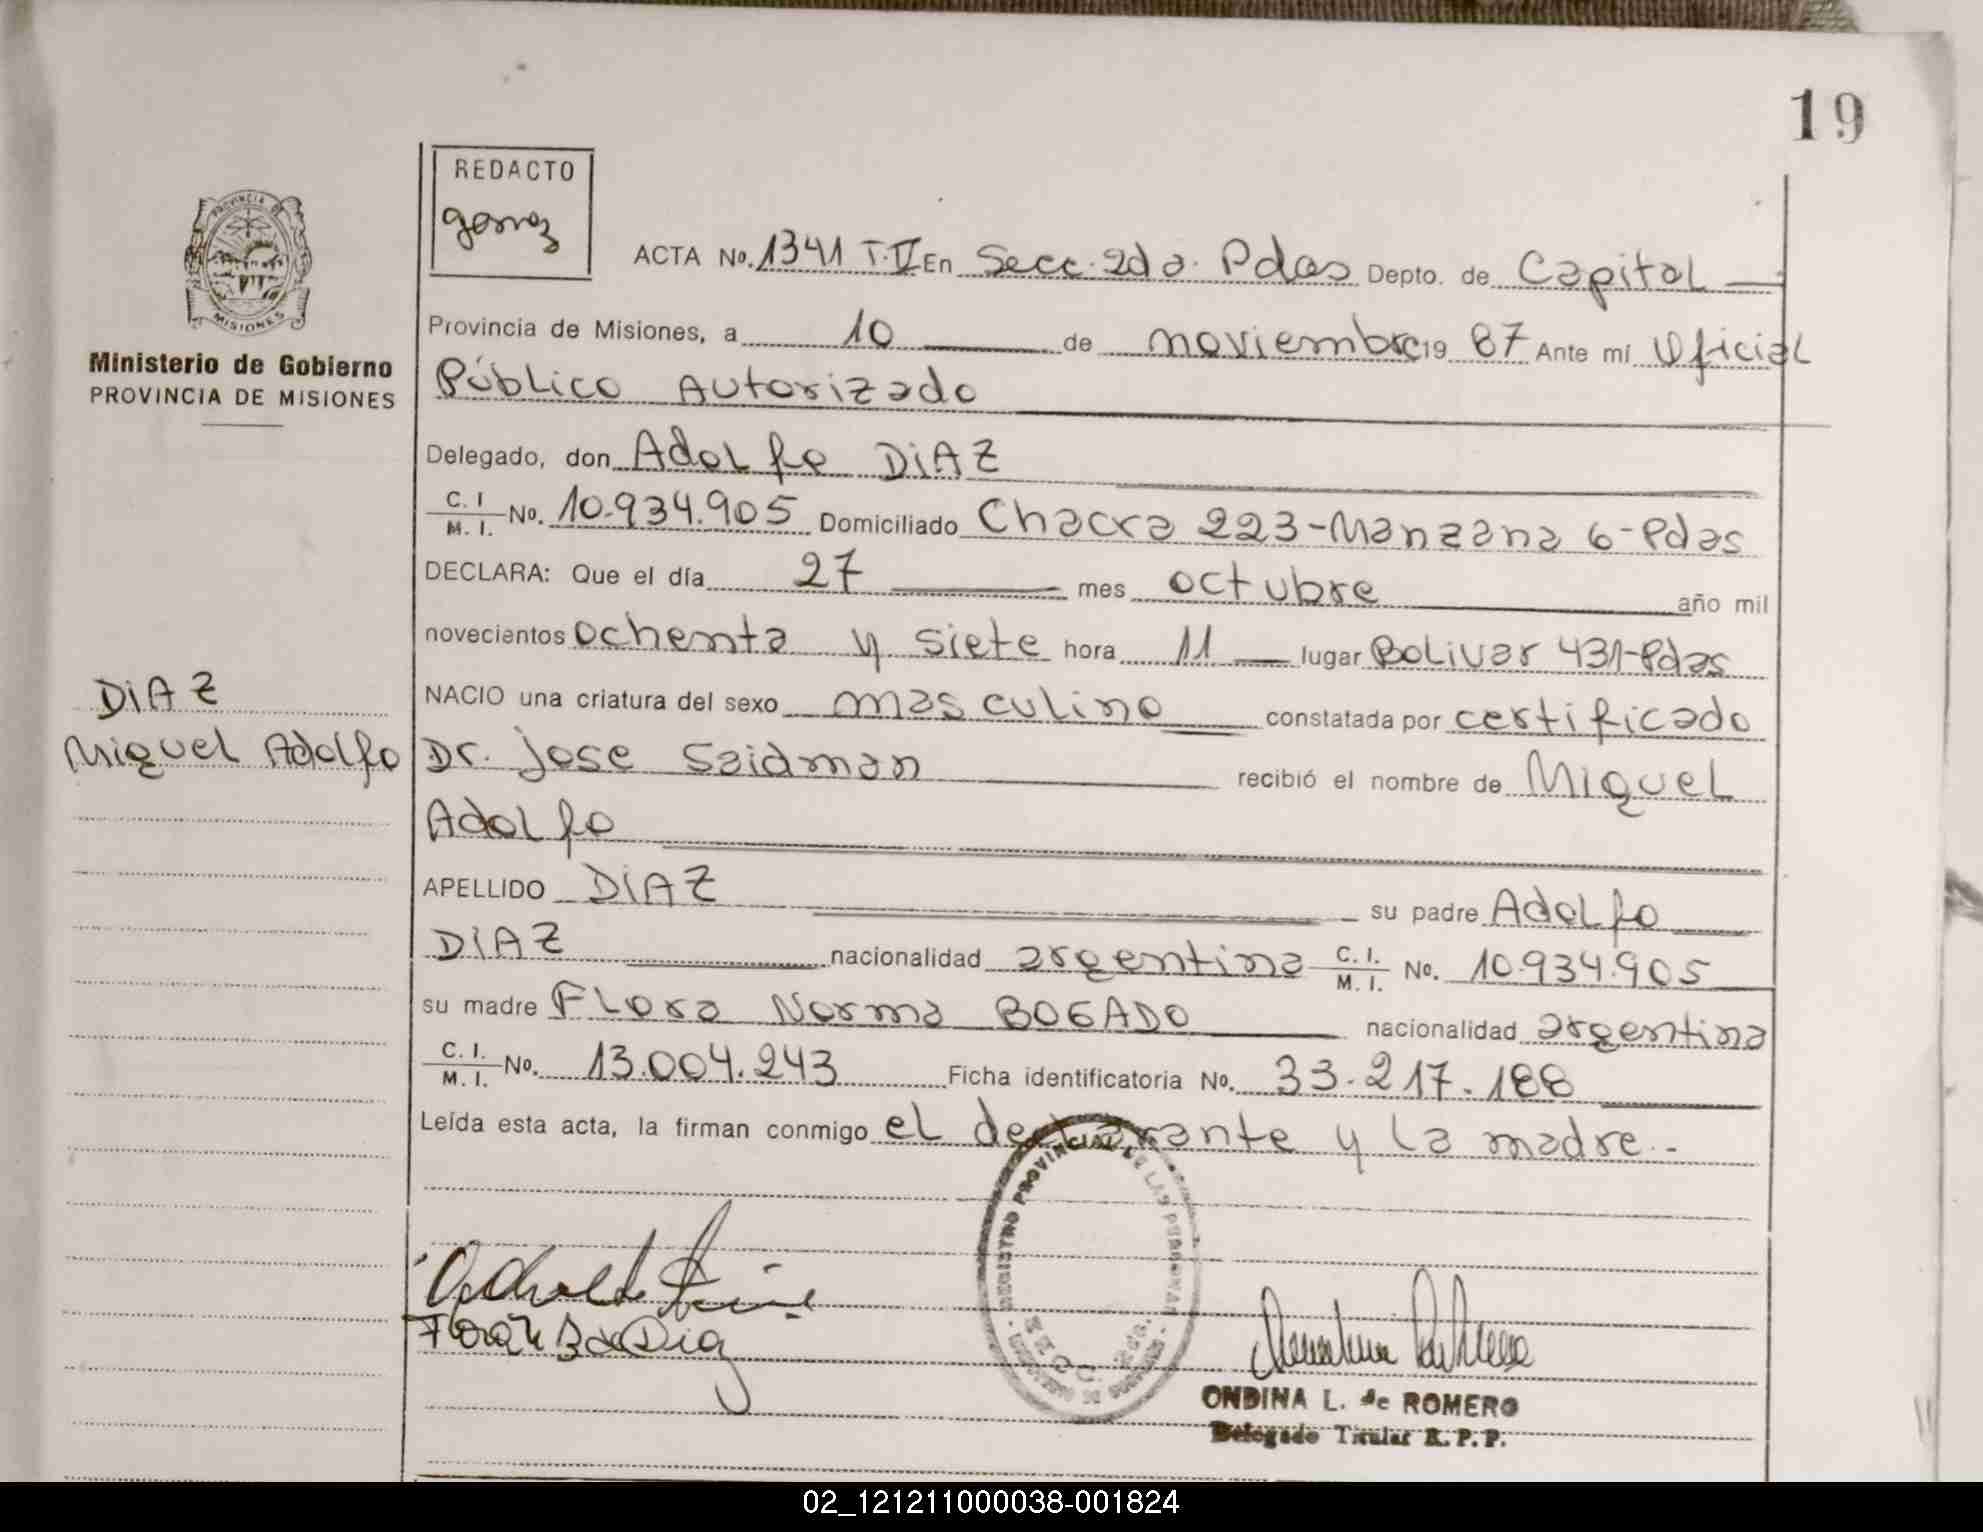 19
REDACTO
gomez
PROVINCIA DE
MISIONES
Ministerio de Gobierno
PROVINCIA DE MISIONES
DIAZ
Miguel Adolfo
ACTA No. 1341 T.IV En Secc. 2da. Pdas Depto. de Capital
Provincia de Misiones, a 10 de noviembre 19 87 Ante mí Oficial
Público Autorizado
Delegado, don Adolfo DIAZ
C. I. M. I. No. 10.934.905 Domiciliado Chacra 223-Manzana 6-Pdas
DECLARA: Que el día 27 mes octubre año mil
novecientos ochenta y siete hora 11 lugar Bolivar 431-Pdas
NACIO una criatura del sexo masculino constatada por certificado
Dr. Jose Saidman recibió el nombre de Miguel
Adolfo
APELLIDO DIAZ su padre Adolfo
DIAZ nacionalidad argentina C. I. M. I. No. 10.934.905
su madre Flora Norma BOGADO nacionalidad argentina
C. I. M. I. No. 13.004.243 Ficha identificatoria No. 33.217.188
Leída esta acta, la firman conmigo el declarante y la madre.-
REGISTRO PROVINCIAL DE LAS PERSONAS
SECC. 2da.
ONDINA L. de ROMERO
Delegado Titular R. P. P.
02_121211000038-001824